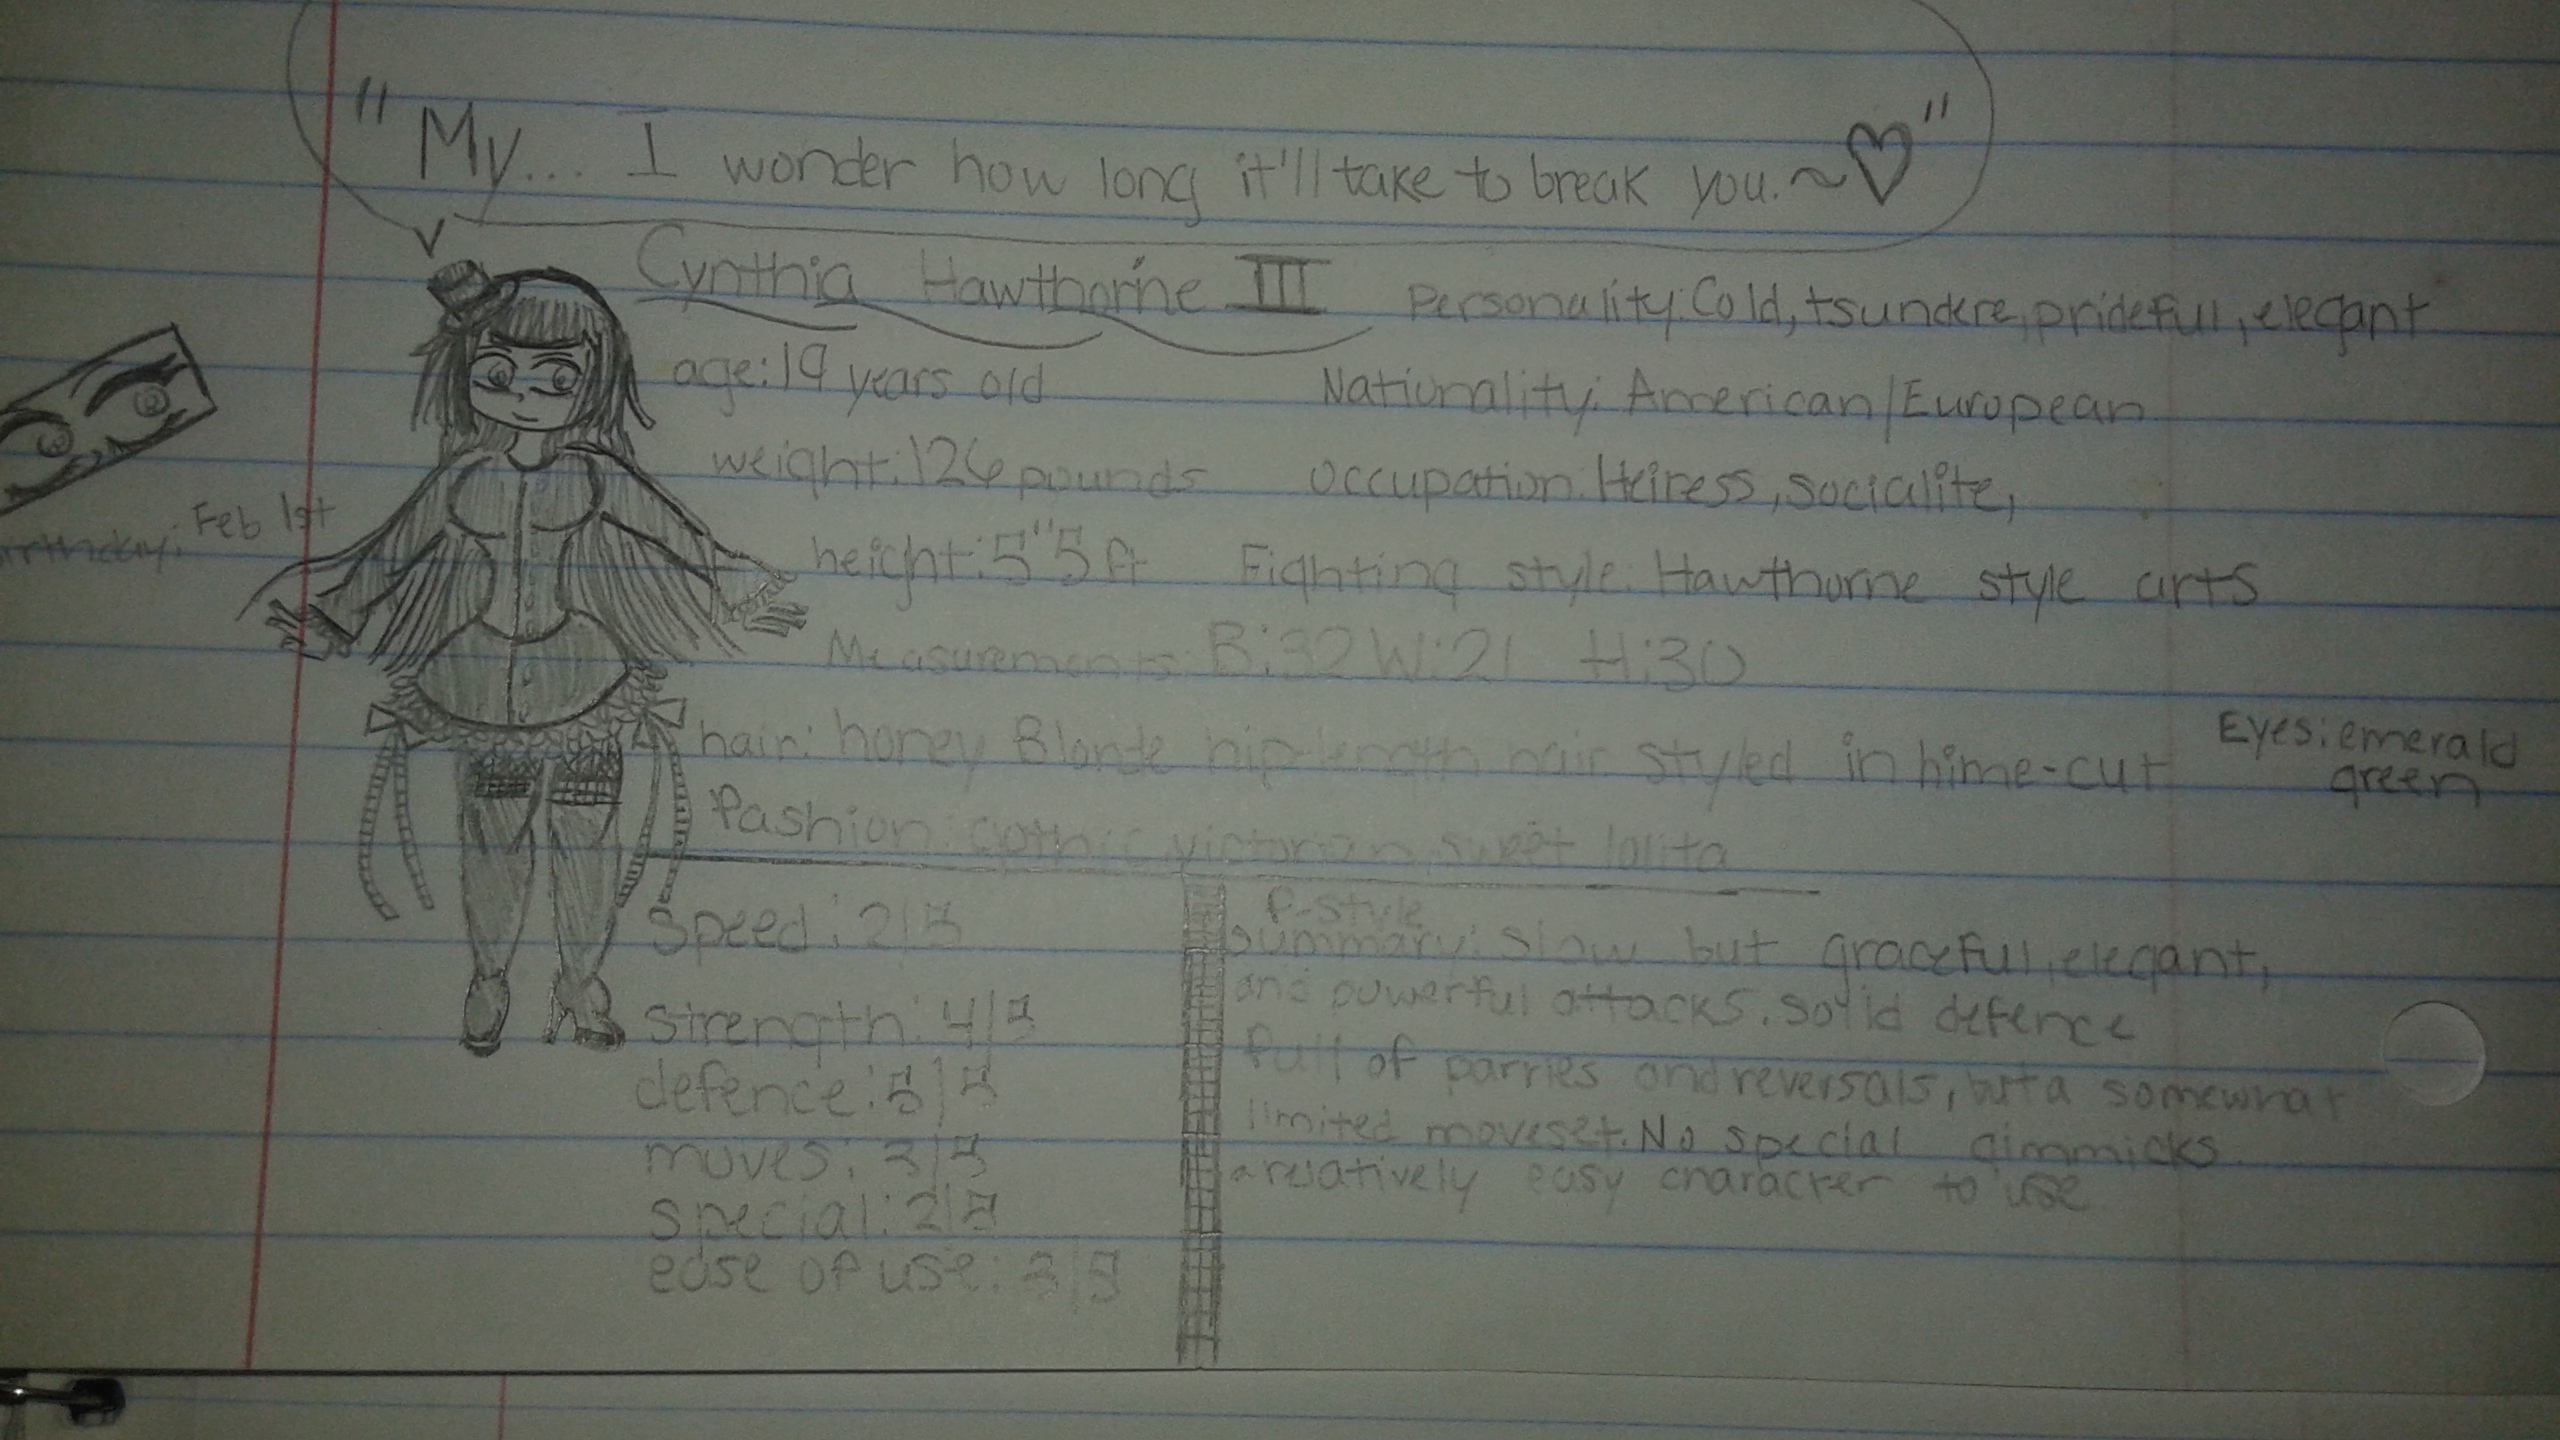 "My... I wonder how long it'll take to break you.~♡"
Cynthia Hawthorne III
Personality: Cold, tsundere, prideful, elegant
age: 19 years old
Nationality: American/European
weight: 126 pounds
occupation: Heiress, socialite,
Feb 1st
height: 5"5 ft
Fighting style: Hawthorne style arts
Measurements: B:32 W:21 H:30
hair: honey Blonde hip-length hair styled in hime-cut
Eyes: emerald
green
Fashion: gothic victorian, sweet lolita
Speed: 2/5
strength: 4/5
defence: 5/5
moves: 3/5
special: 2/5
ease of use: 3/5
F-style
summary: slow but graceful, elegant,
and powerful attacks. solid defence
full of parries and reversals, but a somewhat
limited moveset. No special gimmicks.
a relatively easy character to use.